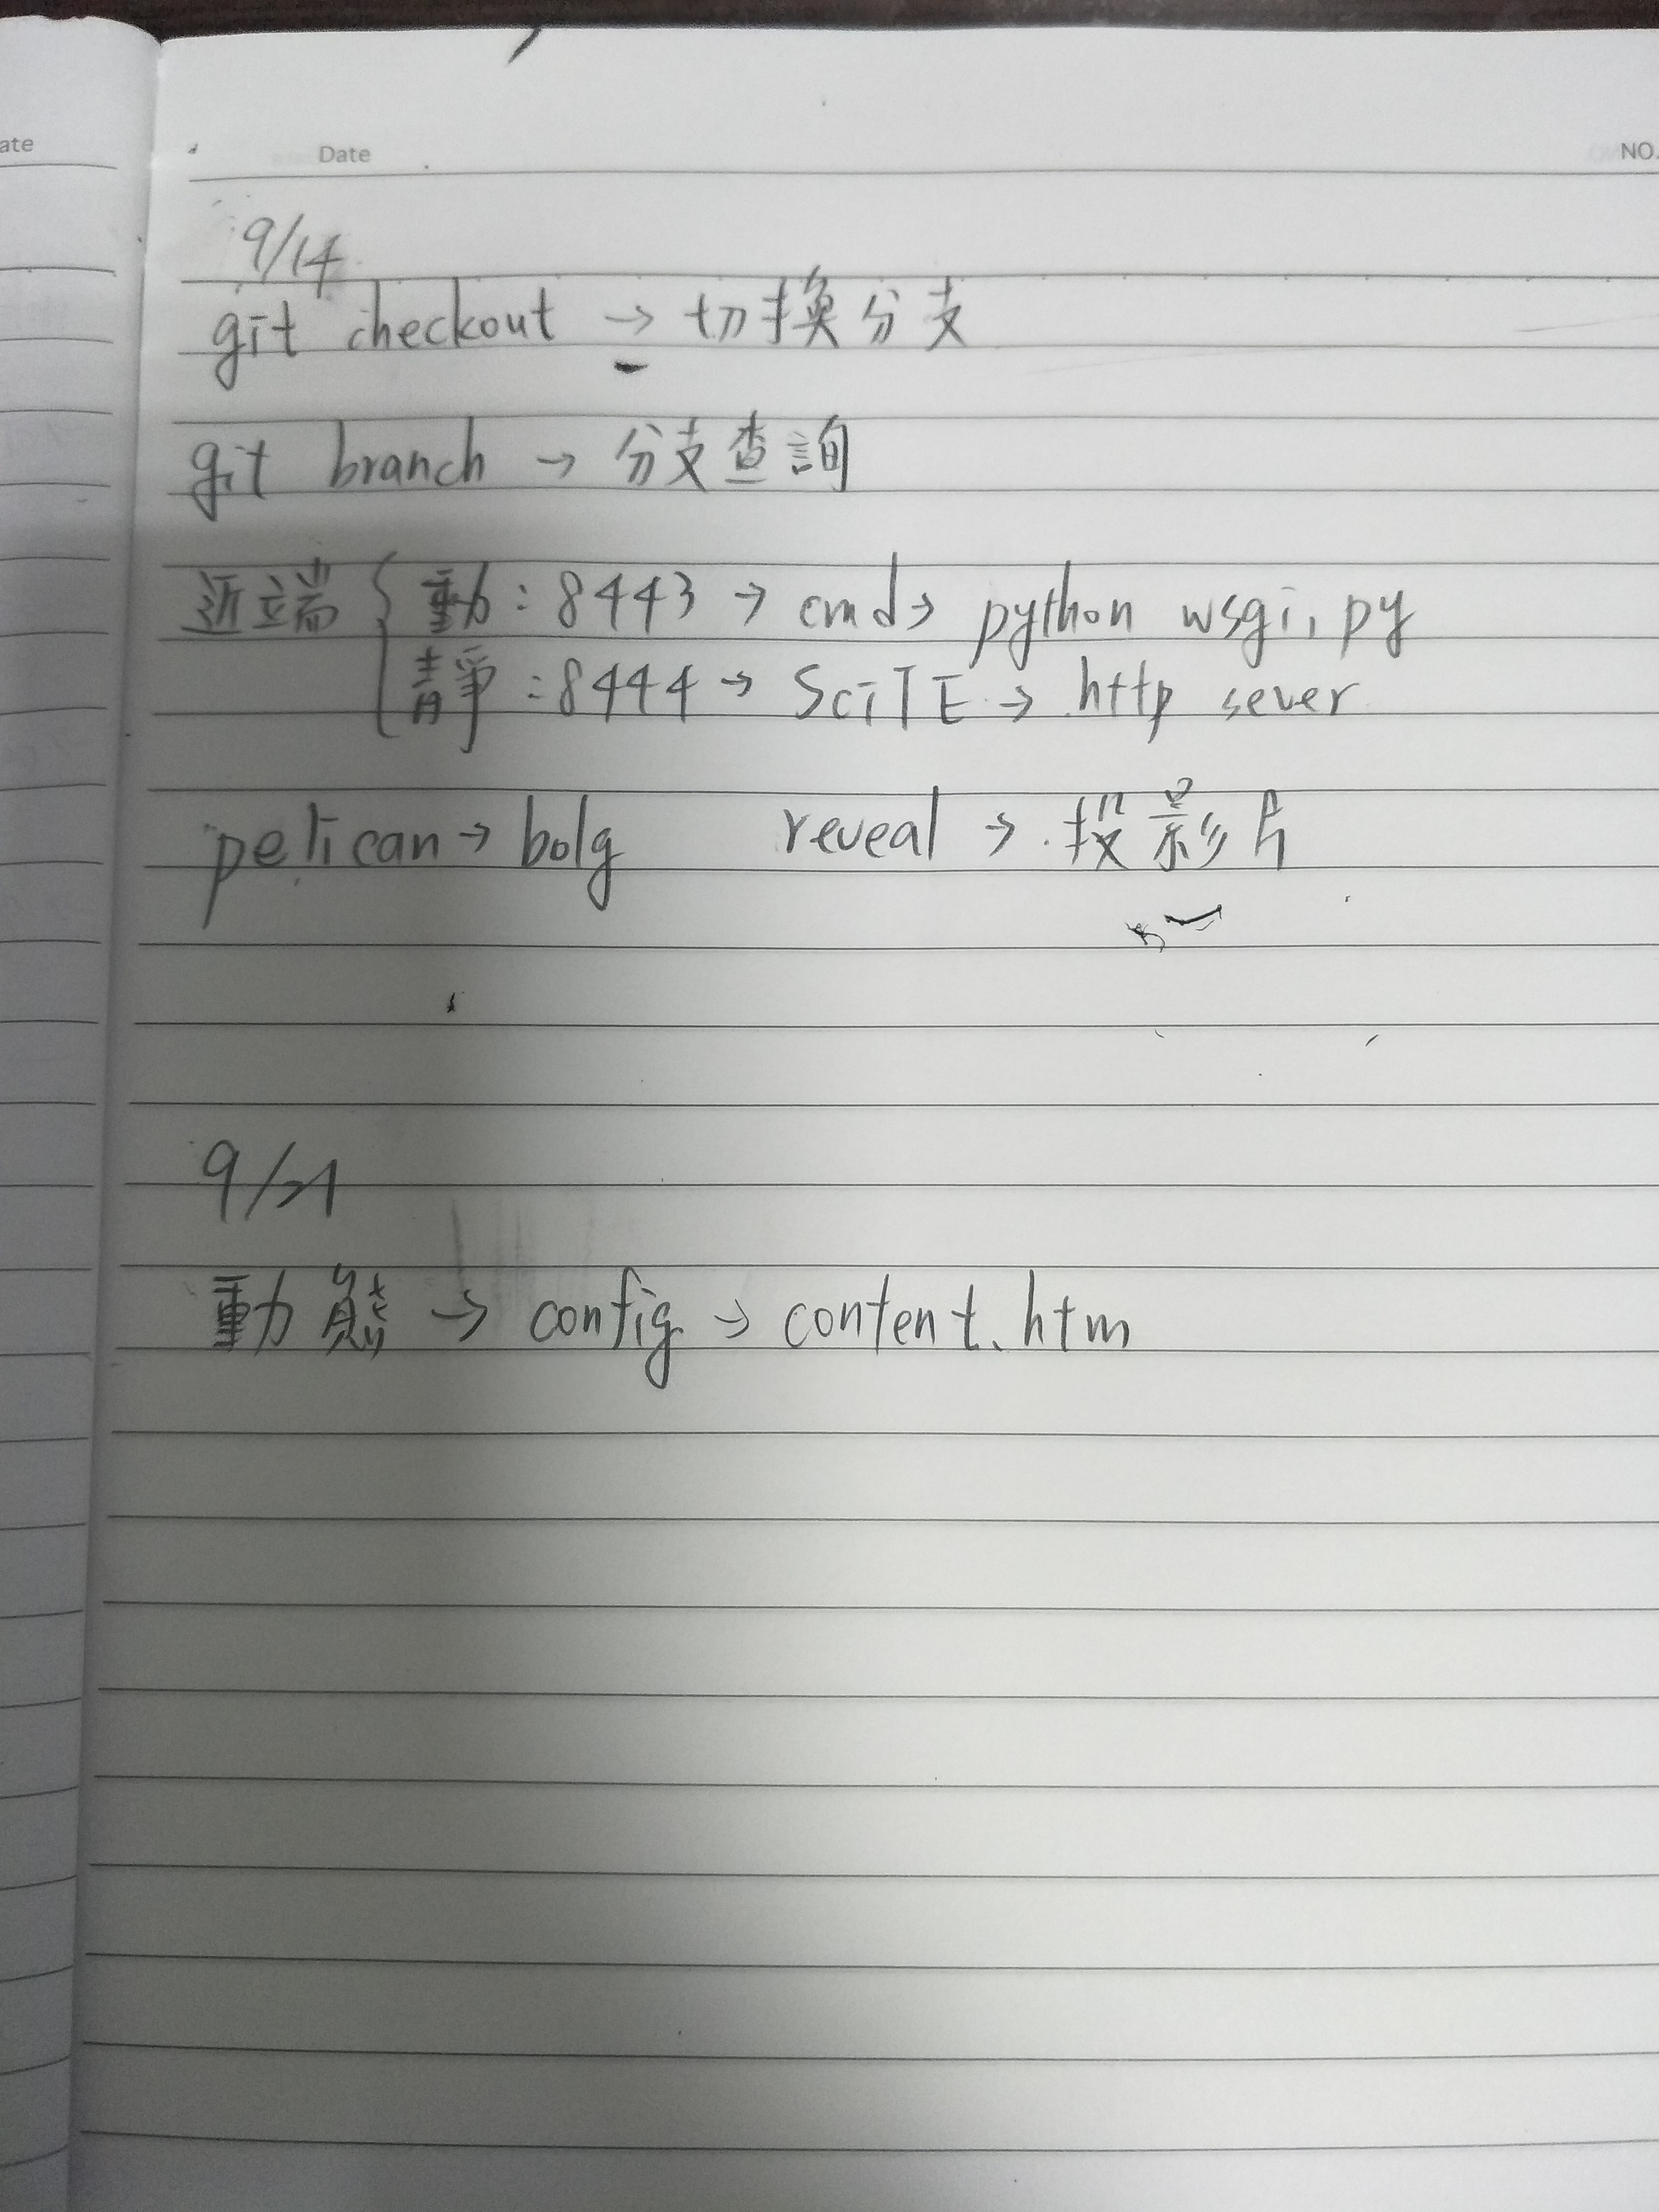 ate
Date
NO.
9/14
git checkout → 切換分支
git branch → 分支查詢
近端 { 動:8443 → cmd → python wsgi.py
靜:8444 → SciTE → http sever
pelican → bolg reveal → 投影片
9/21
動態 → config → content.htm